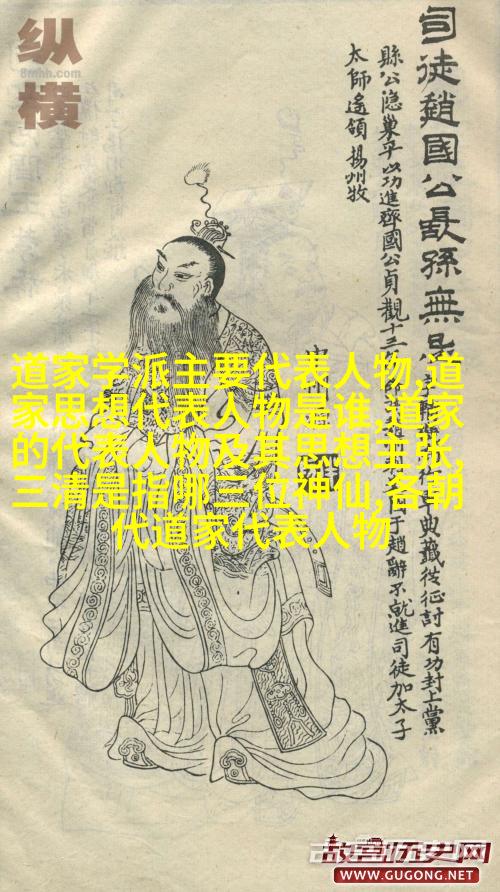 纵横
8mhh.com
司徒趙國公長孫無忌
縣公隐巢平以功進齊國公貞觀十三
太師遙領揚州牧
典籤從征討有功封上黨
于趙辭不就進司徒加太子
道家学派主要代表人物,道
家思想代表人物是谁,道家
的代表人物及其思想主张,
三清是指哪三位神仙,各朝
代道家代表人物
故宫历史网
WWW.GUGONG.NET